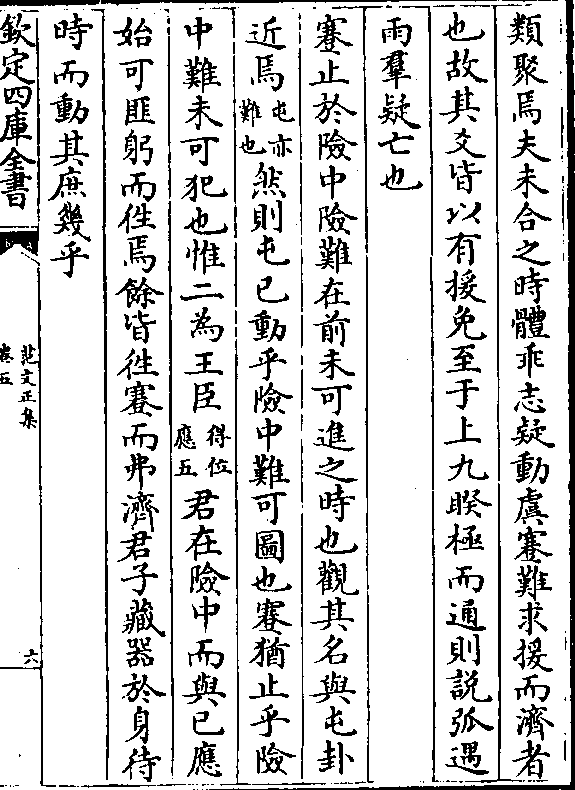 類聚焉夫未合之時體乖志疑動虞蹇難求援而濟者
也故其爻皆以有援免至于上九睽極而通則說弧遇
雨羣疑亡也
蹇止於險中險難在前未可進之時也觀其名與屯卦
近焉屯亦難也然則屯已動乎險中難可圖也蹇猶止乎險
中難未可犯也惟二為王臣得位應五君在險中而與已應
始可匪躬而徃焉餘皆徃蹇而弗濟君子藏器於身待
時而動其庶幾乎
欽定四庫全書
范文正集
卷五
六